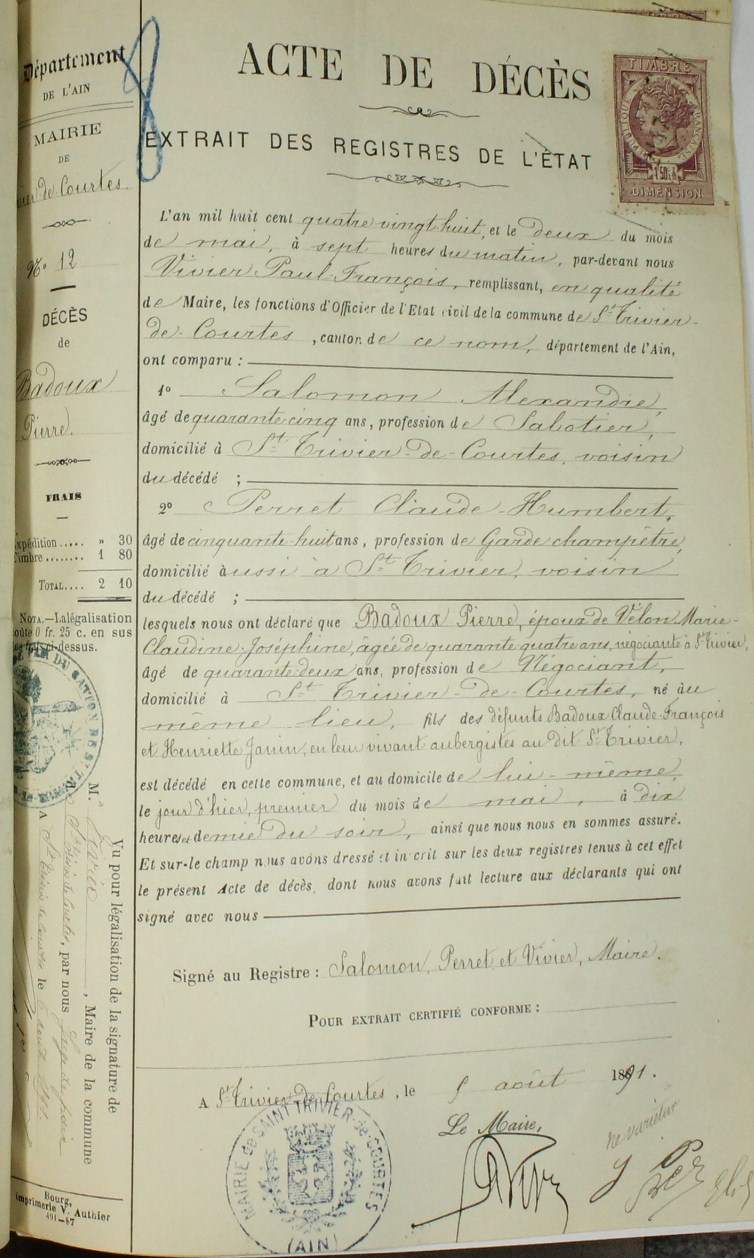 Département
DE L'AIN
MAIRIE
DE
de Courtes
N° 12
DÉCÈS
de
Badoux
Pierre.
FRAIS
Expédition ..... » 30
Timbre ........ 1 80
TOTAL.... 2 10
NOTA.—La légalisation
coûte 0 fr. 25 c. en sus
dessus.
Vu pour légalisation de la signature de
M.
, Maire de la commune
par nous
A
le
Bourg,
Imprimerie V. Authier
491-87
8
ACTE DE DÉCÈS
EXTRAIT DES REGISTRES DE L'ÉTAT
TIMBRE
RÉPUBLIQUE FRANÇAISE
DIMENSION
L'an mil huit cent quatre vingt huit, et le deux du mois
de mai, à sept heures du matin, par-devant nous
Vivier Paul François, remplissant, en qualité
de Maire, les fonctions d'Officier de l'Etat civil de la commune de St Trivier-
de-Courtes, canton de ce nom, département de l'Ain,
ont comparu :
1° Salomon Alexandre,
âgé de quarante cinq ans, profession de Sabotier,
domicilié à St Trivier-de-Courtes, voisin
du décédé ;
2° Perret Claude-Humbert,
âgé de cinquante huit ans, profession de Garde champêtre,
domicilié aussi à St Trivier, voisin
du décédé ;
lesquels nous ont déclaré que Badoux Pierre, époux de Velon Marie-
Claudine-Joséphine, âgée de quarante quatre ans, négociante à St Trivier,
âgé de quarante deux ans, profession de Négociant,
domicilié à St Trivier-de-Courtes, né au
même lieu, fils des défunts Badoux Claude-François
et Henriette Janin, en leur vivant aubergistes au dit St Trivier,
est décédé en cette commune, et au domicile de lui-même,
le jour d'hier, premier du mois de mai, à dix
heures et demie du soir, ainsi que nous nous en sommes assuré.
Et sur-le champ nous avons dressé et inscrit sur les deux registres tenus à cet effet
le présent Acte de décès, dont nous avons fait lecture aux déclarants qui ont
signé avec nous
Signé au Registre : Salomon, Perret et Vivier, Maire.
POUR EXTRAIT CERTIFIÉ CONFORME :
A St Trivier de Courtes, le 5 août 1891.
Le Maire,
ne varietur
MAIRIE de SAINT TRIVIER de COURTES
(AIN)